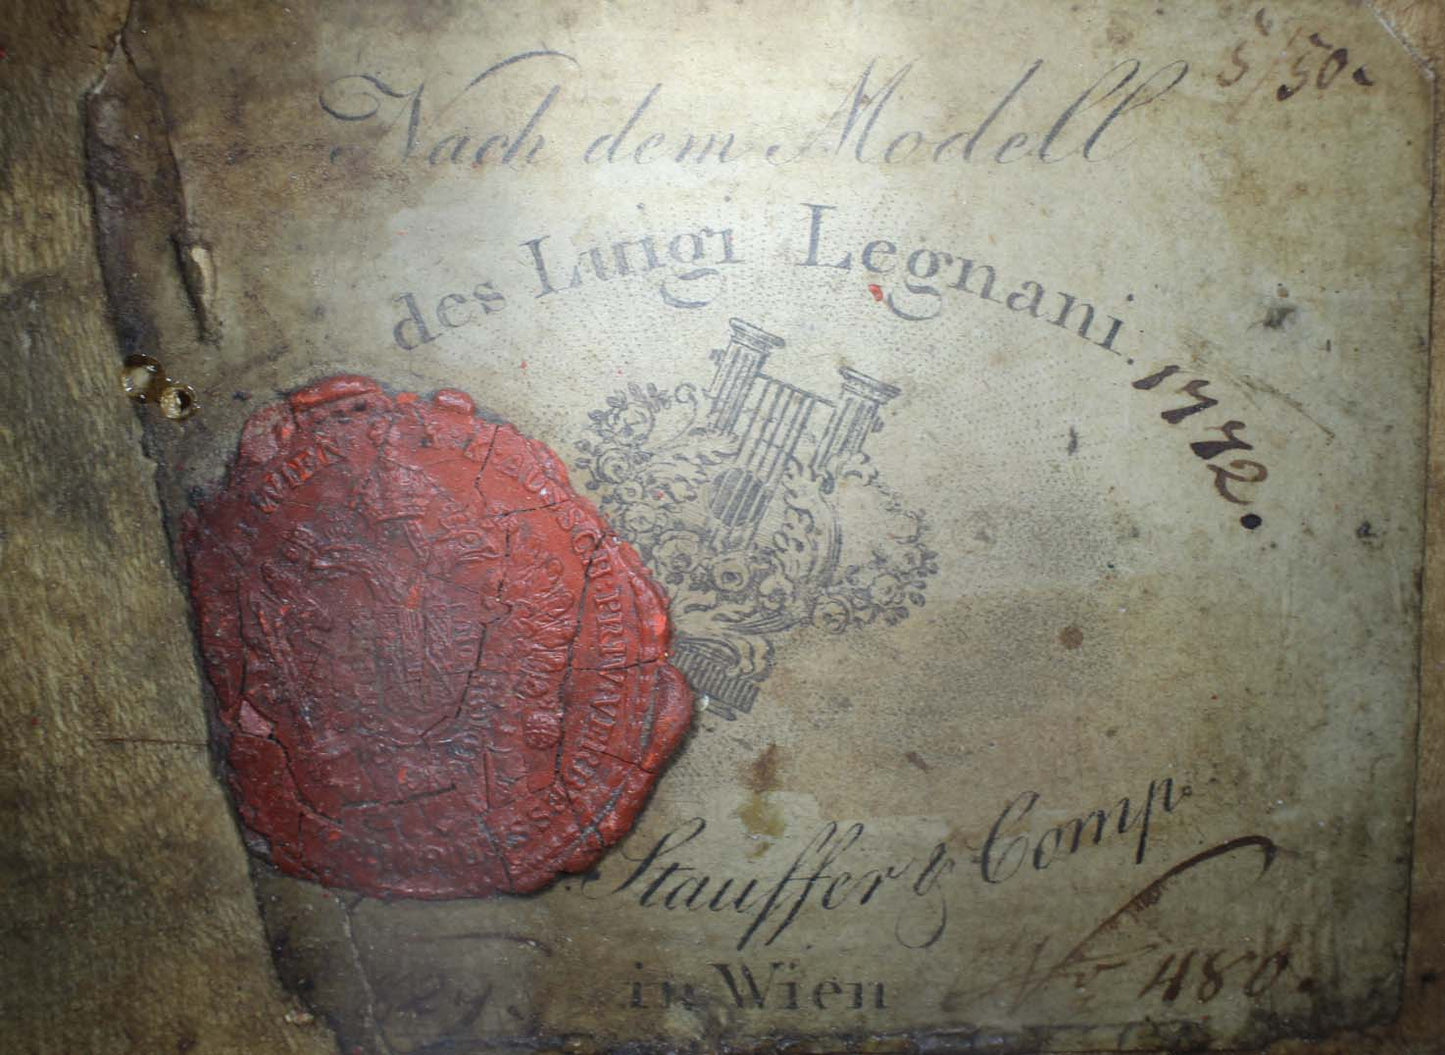 5/50.
Nach dem Modell
des Luigi Legnani.
1772.
WIEN K.K. AUSSCH. PRIV.
Stauffer & Comp.
in Wien
No 480.